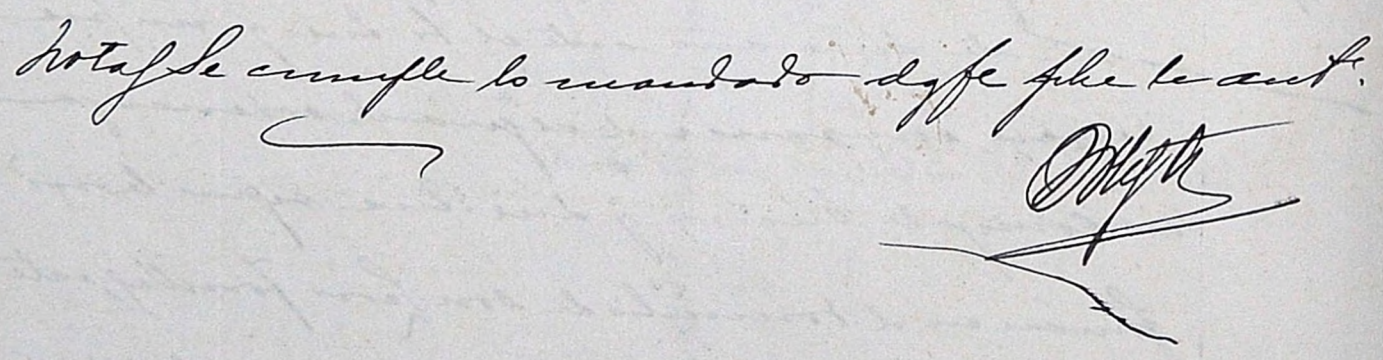 Nota/ Se cumple lo mandado doy fe fha la antr.